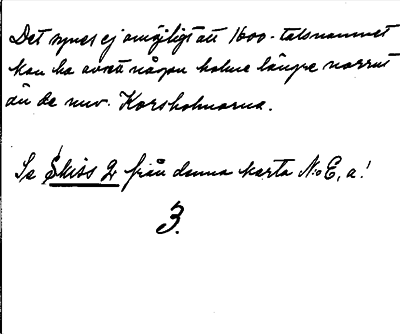 Det synes ej omöjligt att 1600-talsnamnet
kan ha avsett någon holme längre norrut
än de nuv. Korsholmarna.
Se Skiss 2 från denna karta N:o E, a!
3.